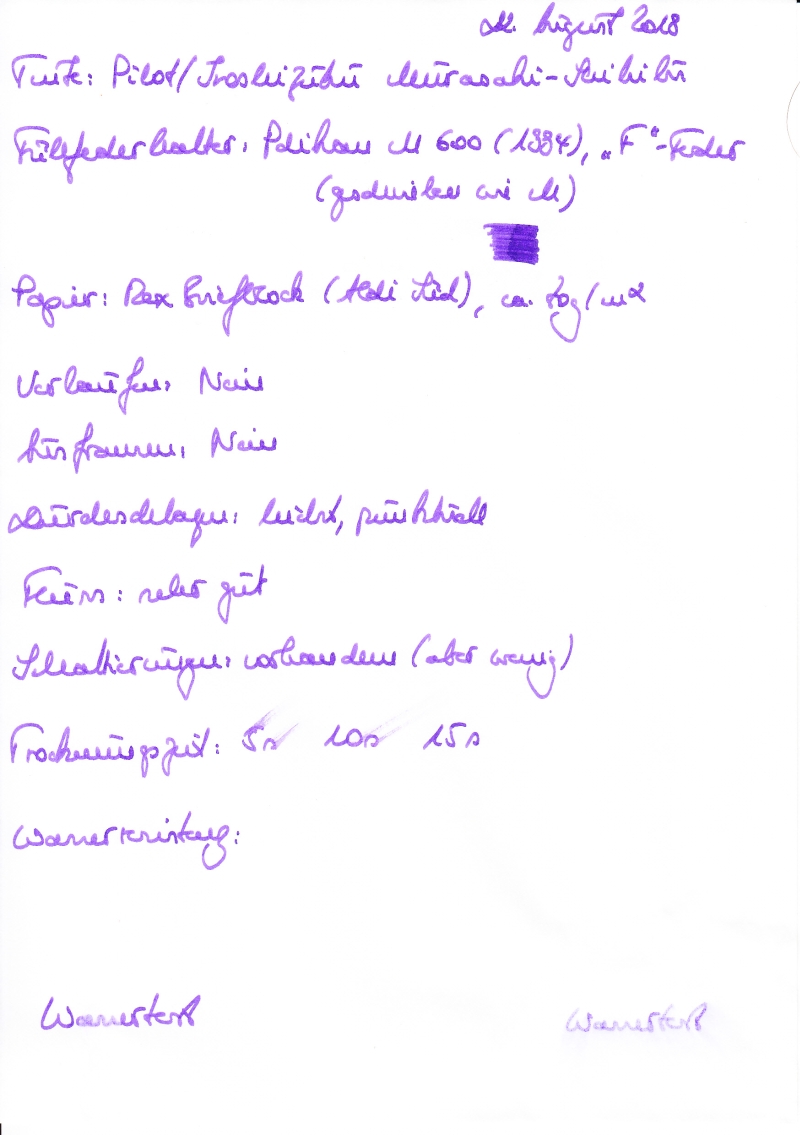 August 2018
Tinte: Pilot/Iroshizuku Murasaki-Shikibu
Füllfederhalter: Pelikan M 600 (1994), „F“-Feder
(geschrieben wie M)
Papier: Rex Briefblock (Aldi Süd), ca. 70g/m²
Verlaufen: Nein
Ausfransen: Nein
Durchschlagen: leicht, punktuell
Fluss: sehr gut
Schattierungen: vorhanden (aber wenig)
Trocknungszeit: 5s 10s 15s
Wasserfestigkeit:
Wassertest Wassertest